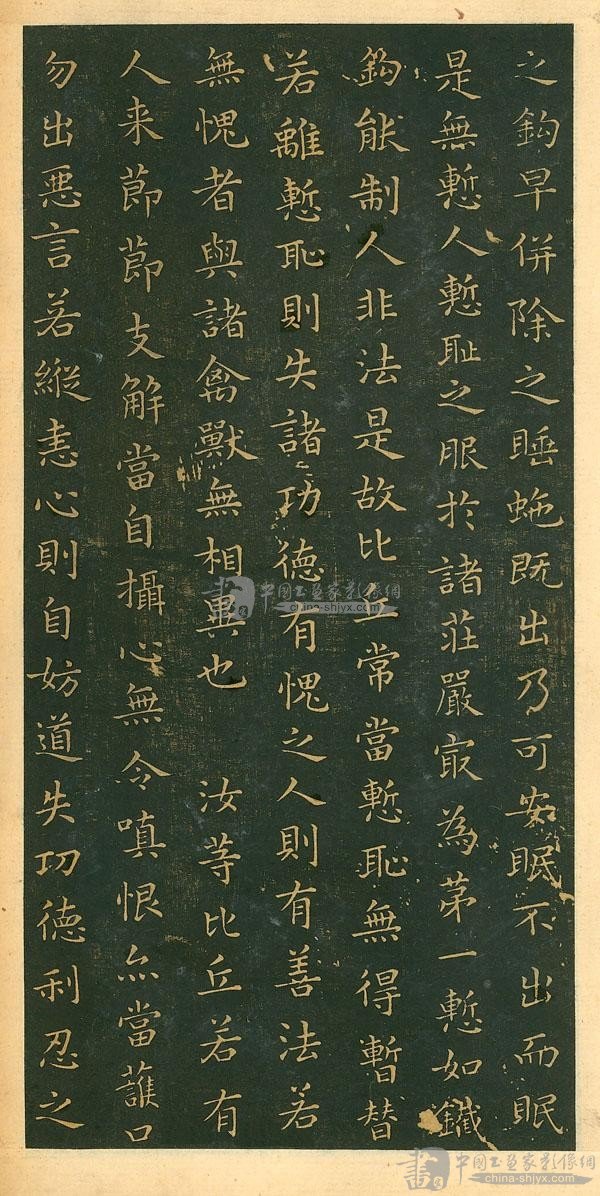 之鈎早併除之睡虵既出乃可安眠不出而眠
是無慙人慙耻之服於諸莊嚴㝡為苐一慙如鐵
鈎能制人非法是故比丘常當慙恥無得暫替
若離慙恥則失諸功德有愧之人則有善法若
無愧者與諸禽獸無相異也 汝等比丘若有
人来節節支解當自攝心無令嗔恨亦當護口
勿出惡言若縱恚心則自妨道失功德利忍之
中国书画家影像網
china-shjyx.com
中国书画家影像網
china-shjyx.com